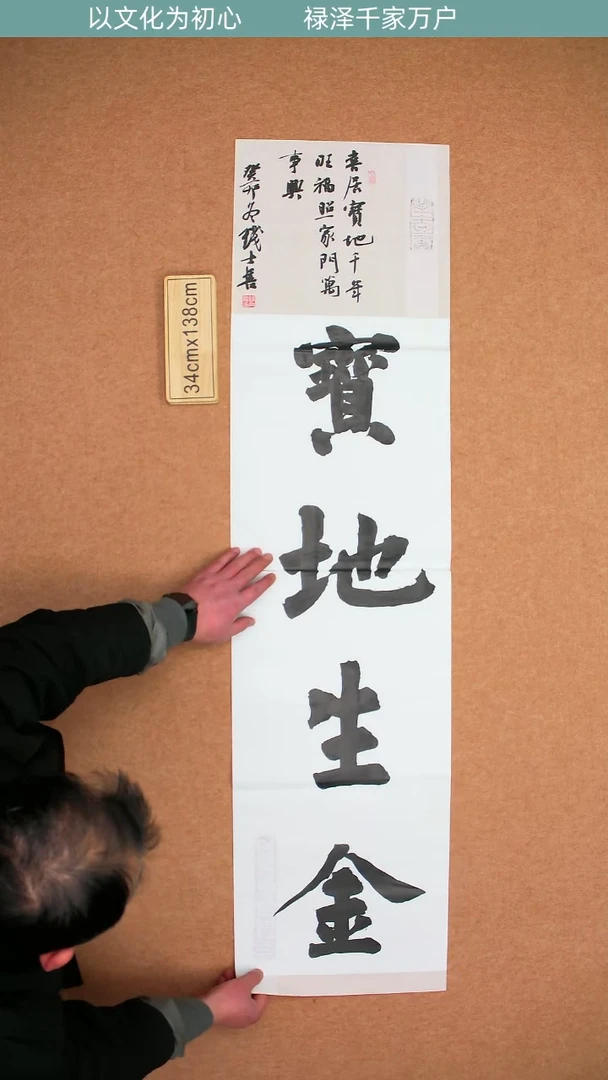 以文化为初心 禄泽千家万户
喜居寶地千年
旺福照家門萬
事興
癸卯冬 錢士善
34cmx138cm
寶地生金